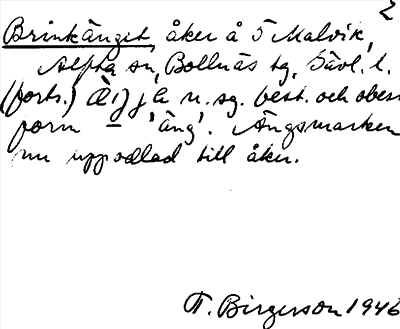 2
Brinkänget, åker å 5 Malvik,
Alfta sn, Bollnäs tg, Gävl. l.
(forts.) n. sg. best. och obest
form – 'äng'. Ängsmarken
nu uppodlad till åker.
T. Birgerson 1946